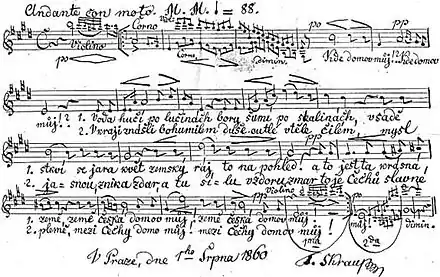 Andante con moto. M. M. ♩ = 88.
Corno
Violino
Corni
Dimin.
po
pp
Kde domov můj!? Kde domov
můj!? 1. Voda hučí po lučinách bory šumí po skalinách, v sadě
2. V kraji znášli bohumilém duše outlé v těle čilém, mysl
1. ství se jara květ zemský ráj to na pohled! a to jest ta krásná,
2. jasnou znik a zdar a tu sílu vzdoru zmar to je Čechů slavné
Violino
pp
1. země, země česká domov můj! země česká domov můj!
2. plémě, mezi Čechy domov můj! mezi Čechy domov můj!
1ma
můj!
2da
dimin.
V Praze, dne 1ho Srpna 1860
F. Škraup